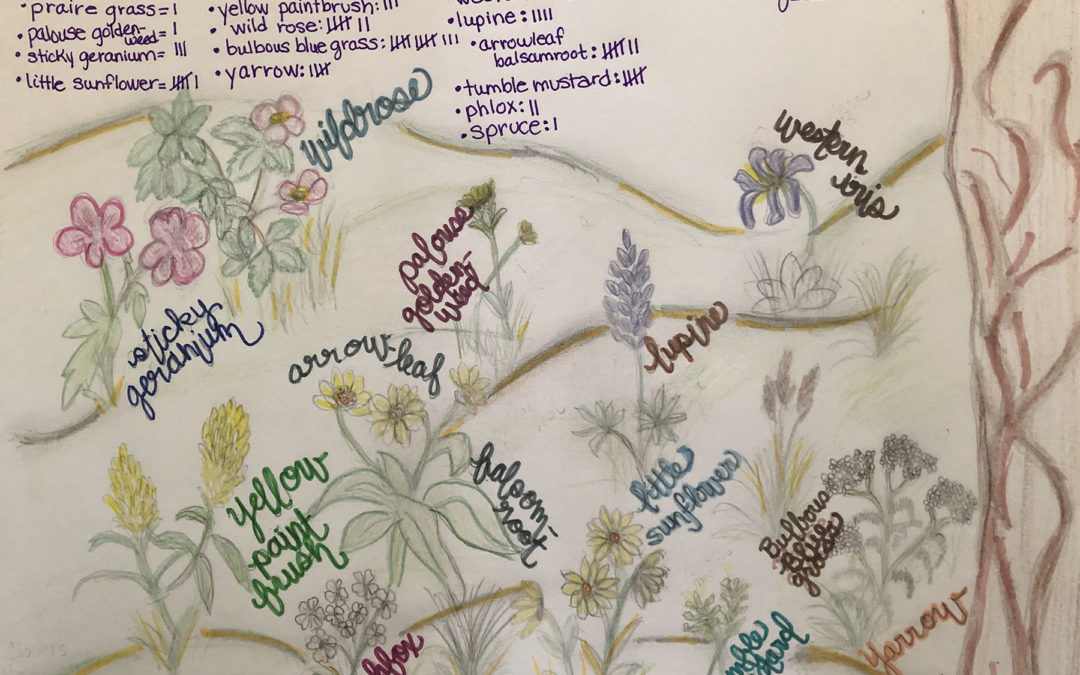 • praire grass= I
• palouse golden-
weed= I
• sticky geranium= III
• little sunflower= 𝍸 I
• yellow paintbrush: III
• wild rose: 𝍸 II
• bulbous blue grass: 𝍸 𝍸 III
• yarrow: 𝍸
• lupine: IIII
• arrowleaf
balsamroot: 𝍸 II
• tumble mustard: 𝍸
• phlox: II
• spruce: I
wildrose
western
iris
palouse
golden-
weed
sticky
geranium
lupine
arrow-leaf
baloom-
root
little
sunflower
yellow
paint
brush
Bulbous
Blue
grass
yarrow